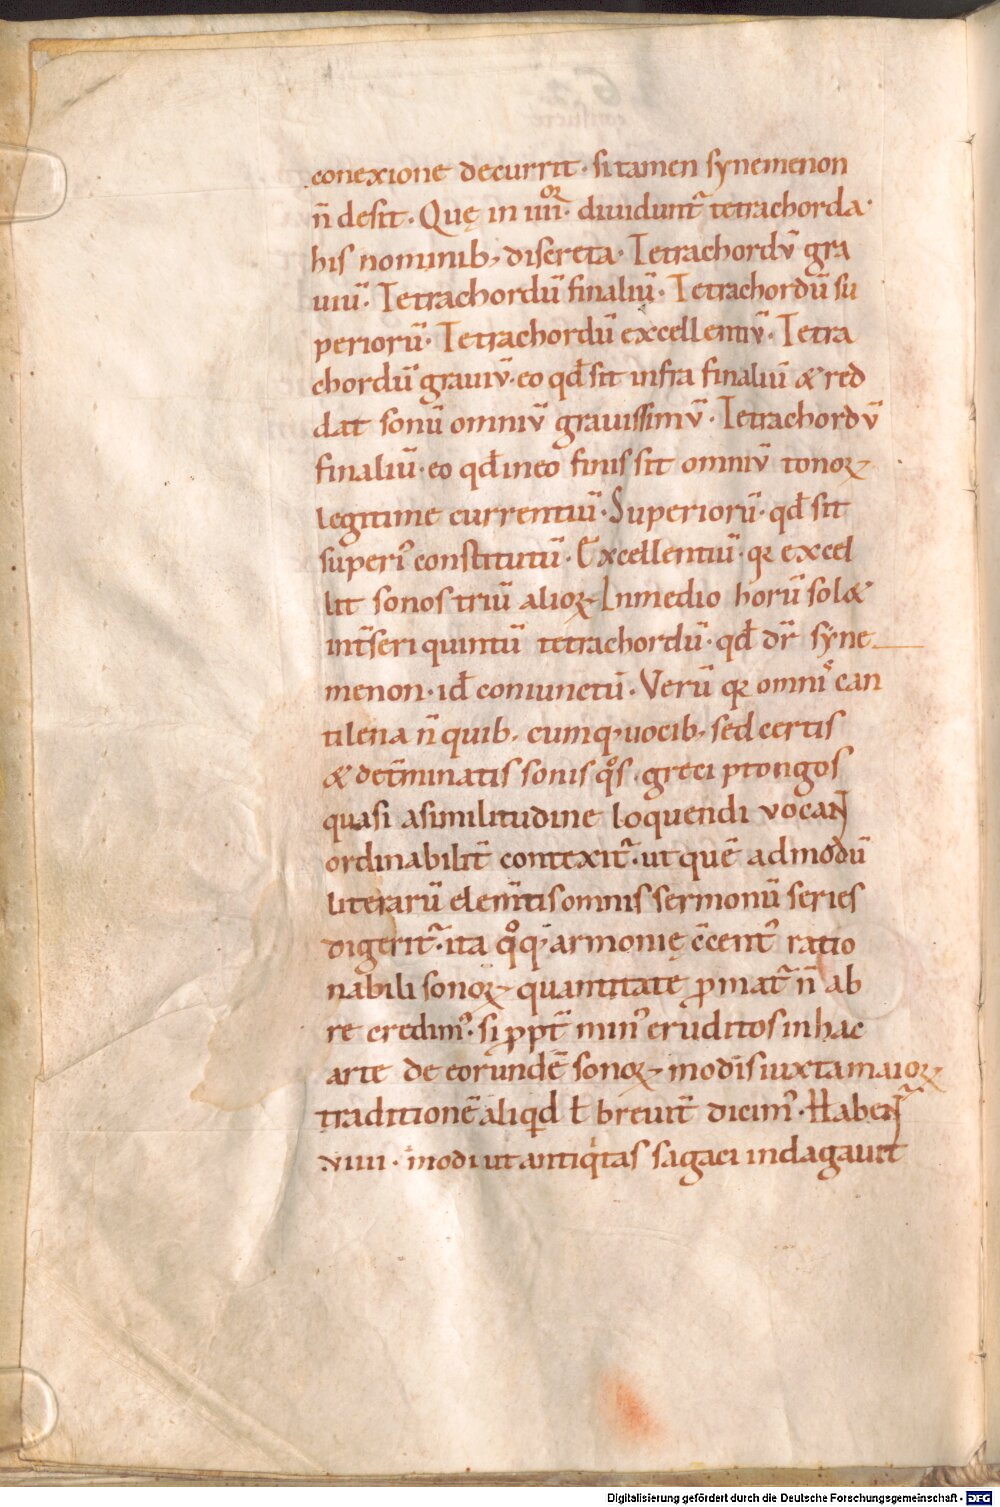 conexione decurrit · si tamen synemenon
n̄ desit · Quę in iiii·oꝝ diuidunt᷑ tetrachorda ·
his nominib; discreta · Tetrachordū gra
uiū · Tetrachordū finaliū · Tetrachordū su
periorū · Tetrachordū excellentiū · Tetra
chordū grauiū · eo qđ sit infra finaliū & red
dat sonū omniū grauissimū · Tetrachordū
finaliū · eo qđ in eo finis sit omniū tonoꝝ
legitime currentiū · Superiorū · qđ sit
superi᷑ constitutū · Excellentiū · qꝛ excel
lit sonos triū alioꝝ · In medio horū sol&
int̄seri quintū tetrachordū · qđ dr̄ syne
menon · id̄ coniunctū · Verū qꝛ omnis can
tilena n̄ quib; cumq; uocib; sed certis
& det̄minatis sonis qͦs greci ptongos
quasi a similitudine loquendi vocaɴ᷑
ordinabilit̄ contexit᷑ · ut quē admodū
literarū elem̄tis omnis sermonū series
digerit᷑ · ita qͦq; armonię c̄cent᷒ ratio
nabili sonoꝝ quantitate ꝓmat᷑ n̄ ab
re credim᷒ · si ꝓpt̄ min᷒ eruditos in hac
arte de eorundē sonoꝝ modis iuxta maioꝝ
traditionē aliqid ł breuit̄ dicim᷒ · Habeɴ᷑
viiii · modi ut antiqitas sagaci indagauit
Digitalisierung gefördert durch die Deutsche Forschungsgemeinschaft - DFG